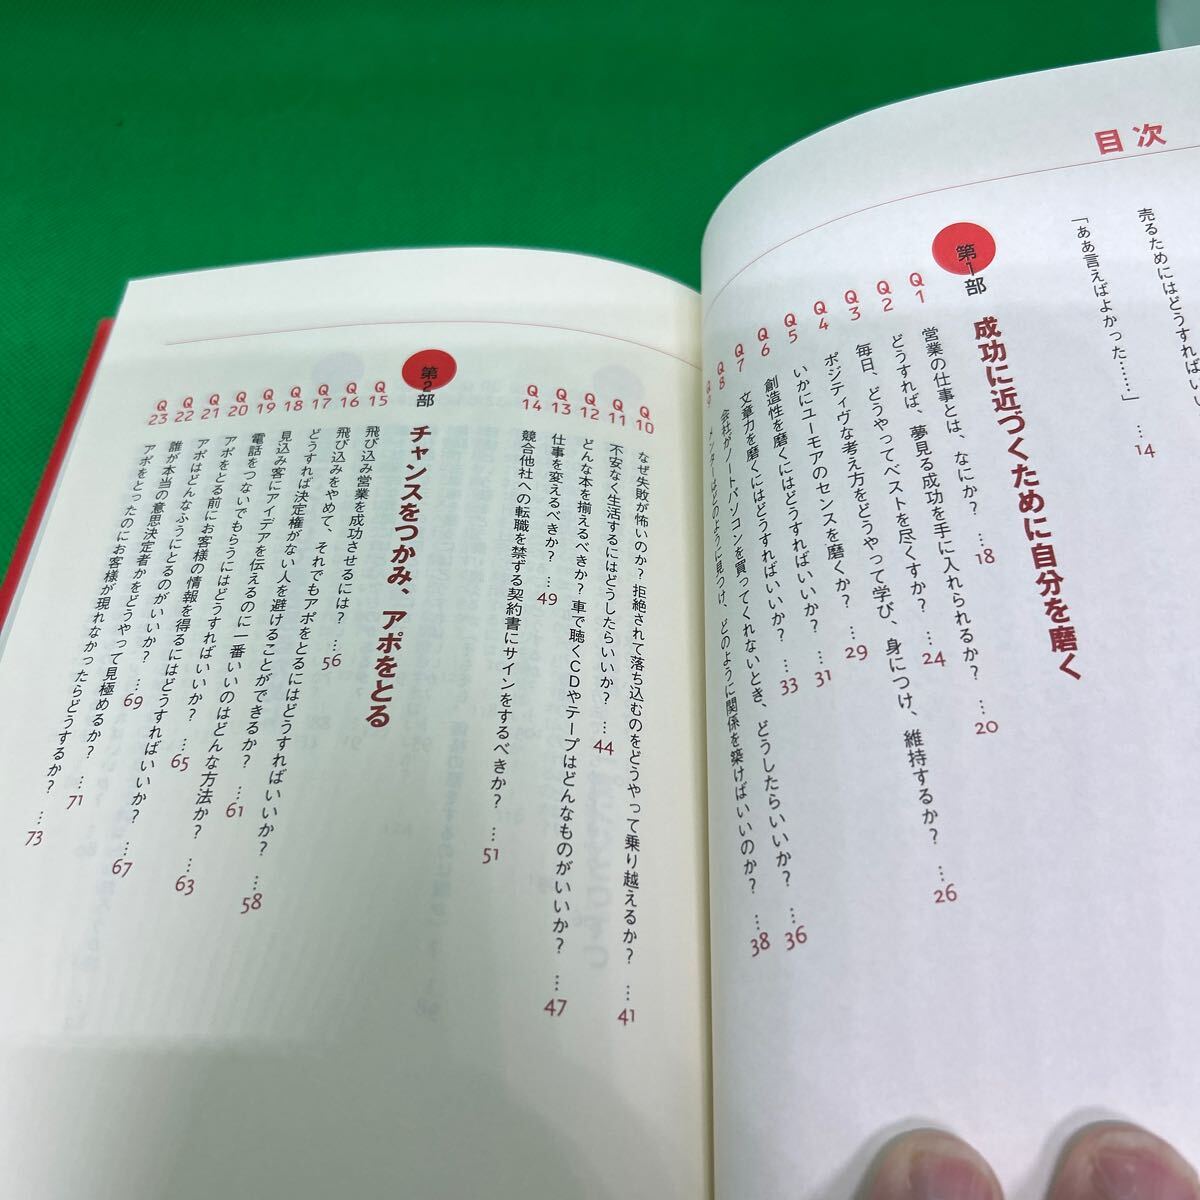 目次
売るためにはどうすればいい
「ああ言えばよかった……」 …14
第1部 成功に近づくために自分を磨く
Q1 営業の仕事とは、なにか? …18
Q2 どうすれば、夢見る成功を手に入れられるか? …20
Q3 毎日、どうやってベストを尽くすか? …24
Q4 ポジティヴな考え方をどうやって学び、身につけ、維持するか? …26
Q5 いかにユーモアのセンスを磨くか? …29
Q6 創造性を磨くにはどうすればいいか? …31
Q7 文章力を磨くにはどうすればいいか? …33
Q8 会社がノートパソコンを買ってくれないとき、どうしたらいいか? …36
Q9 メンターはどのように見つけ、どのように関係を築けばいいのか? …38
Q10 なぜ失敗が怖いのか? 拒絶されて落ち込むのをどうやって乗り越えるか? …41
Q11 不安なく生活するにはどうしたらいいか? …44
Q12 どんな本を揃えるべきか? 車で聴くCDやテープはどんなものがいいか? …47
Q13 仕事を変えるべきか? …49
Q14 競合他社への転職を禁ずる契約書にサインをするべきか? …51
第2部 チャンスをつかみ、アポをとる
Q15 飛び込み営業を成功させるには? …56
Q16 飛び込みをやめて、それでもアポをとるにはどうすればいいか? …58
Q17 どうすれば決定権がない人を避けることができるか? …61
Q18 見込み客にアイデアを伝えるのに一番いいのはどんな方法か? …63
Q19 電話をつないでもらうにはどうすればいいか? …65
Q20 アポをとる前にお客様の情報を得るにはどうすればいいか? …67
Q21 アポはどんなふうにとるのがいいか? …69
Q22 誰が本当の意思決定者かをどうやって見極めるか? …71
Q23 アポをとったのにお客様が現れなかったらどうするか? …73